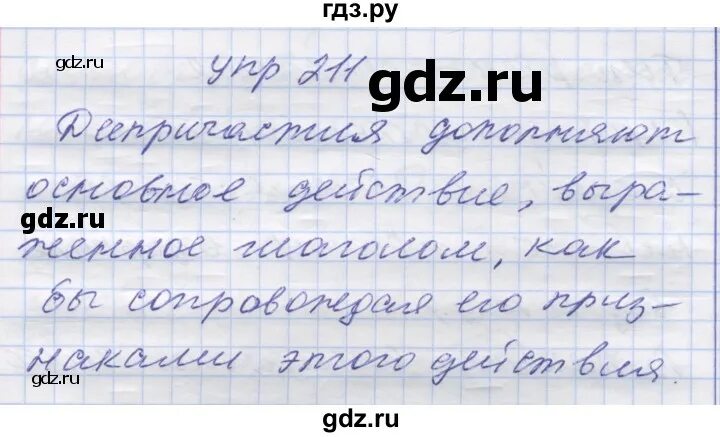 гдз.ру
gdz.ru
упр 211
gdz.ru
Деепричастия дополняют
основное действие, выра-
gdz.ru
женное глаголом, как
бы сопровождая его приз-
gdz.ru
наками этого действия.
gdz.ru